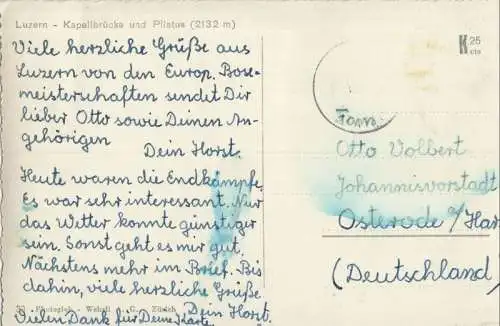 Luzern - Kapellbrücke und Pilatus (2132 m)
Viele herzliche Grüße aus
Luzern von den Europ. Boxe-
meisterschaften sendet Dir
lieber Otto sowie Deinen An-
gehörigen
Dein Horst.
Heute waren die Endkämpfe.
Es war sehr interessant. Nur
das Wetter konnte günstiger
sein. Sonst geht es mir gut.
Nächstens mehr im Brief. Bis
dahin, viele herzliche Grüße
Dein Horst.
Vielen Dank für Deine Karte
Photoglob - Wehrli A. G., Zürich
K 25
cts
Fam.
Otto Volbert
Johannisvorstadt
Osterode a/Har
(Deutschland)